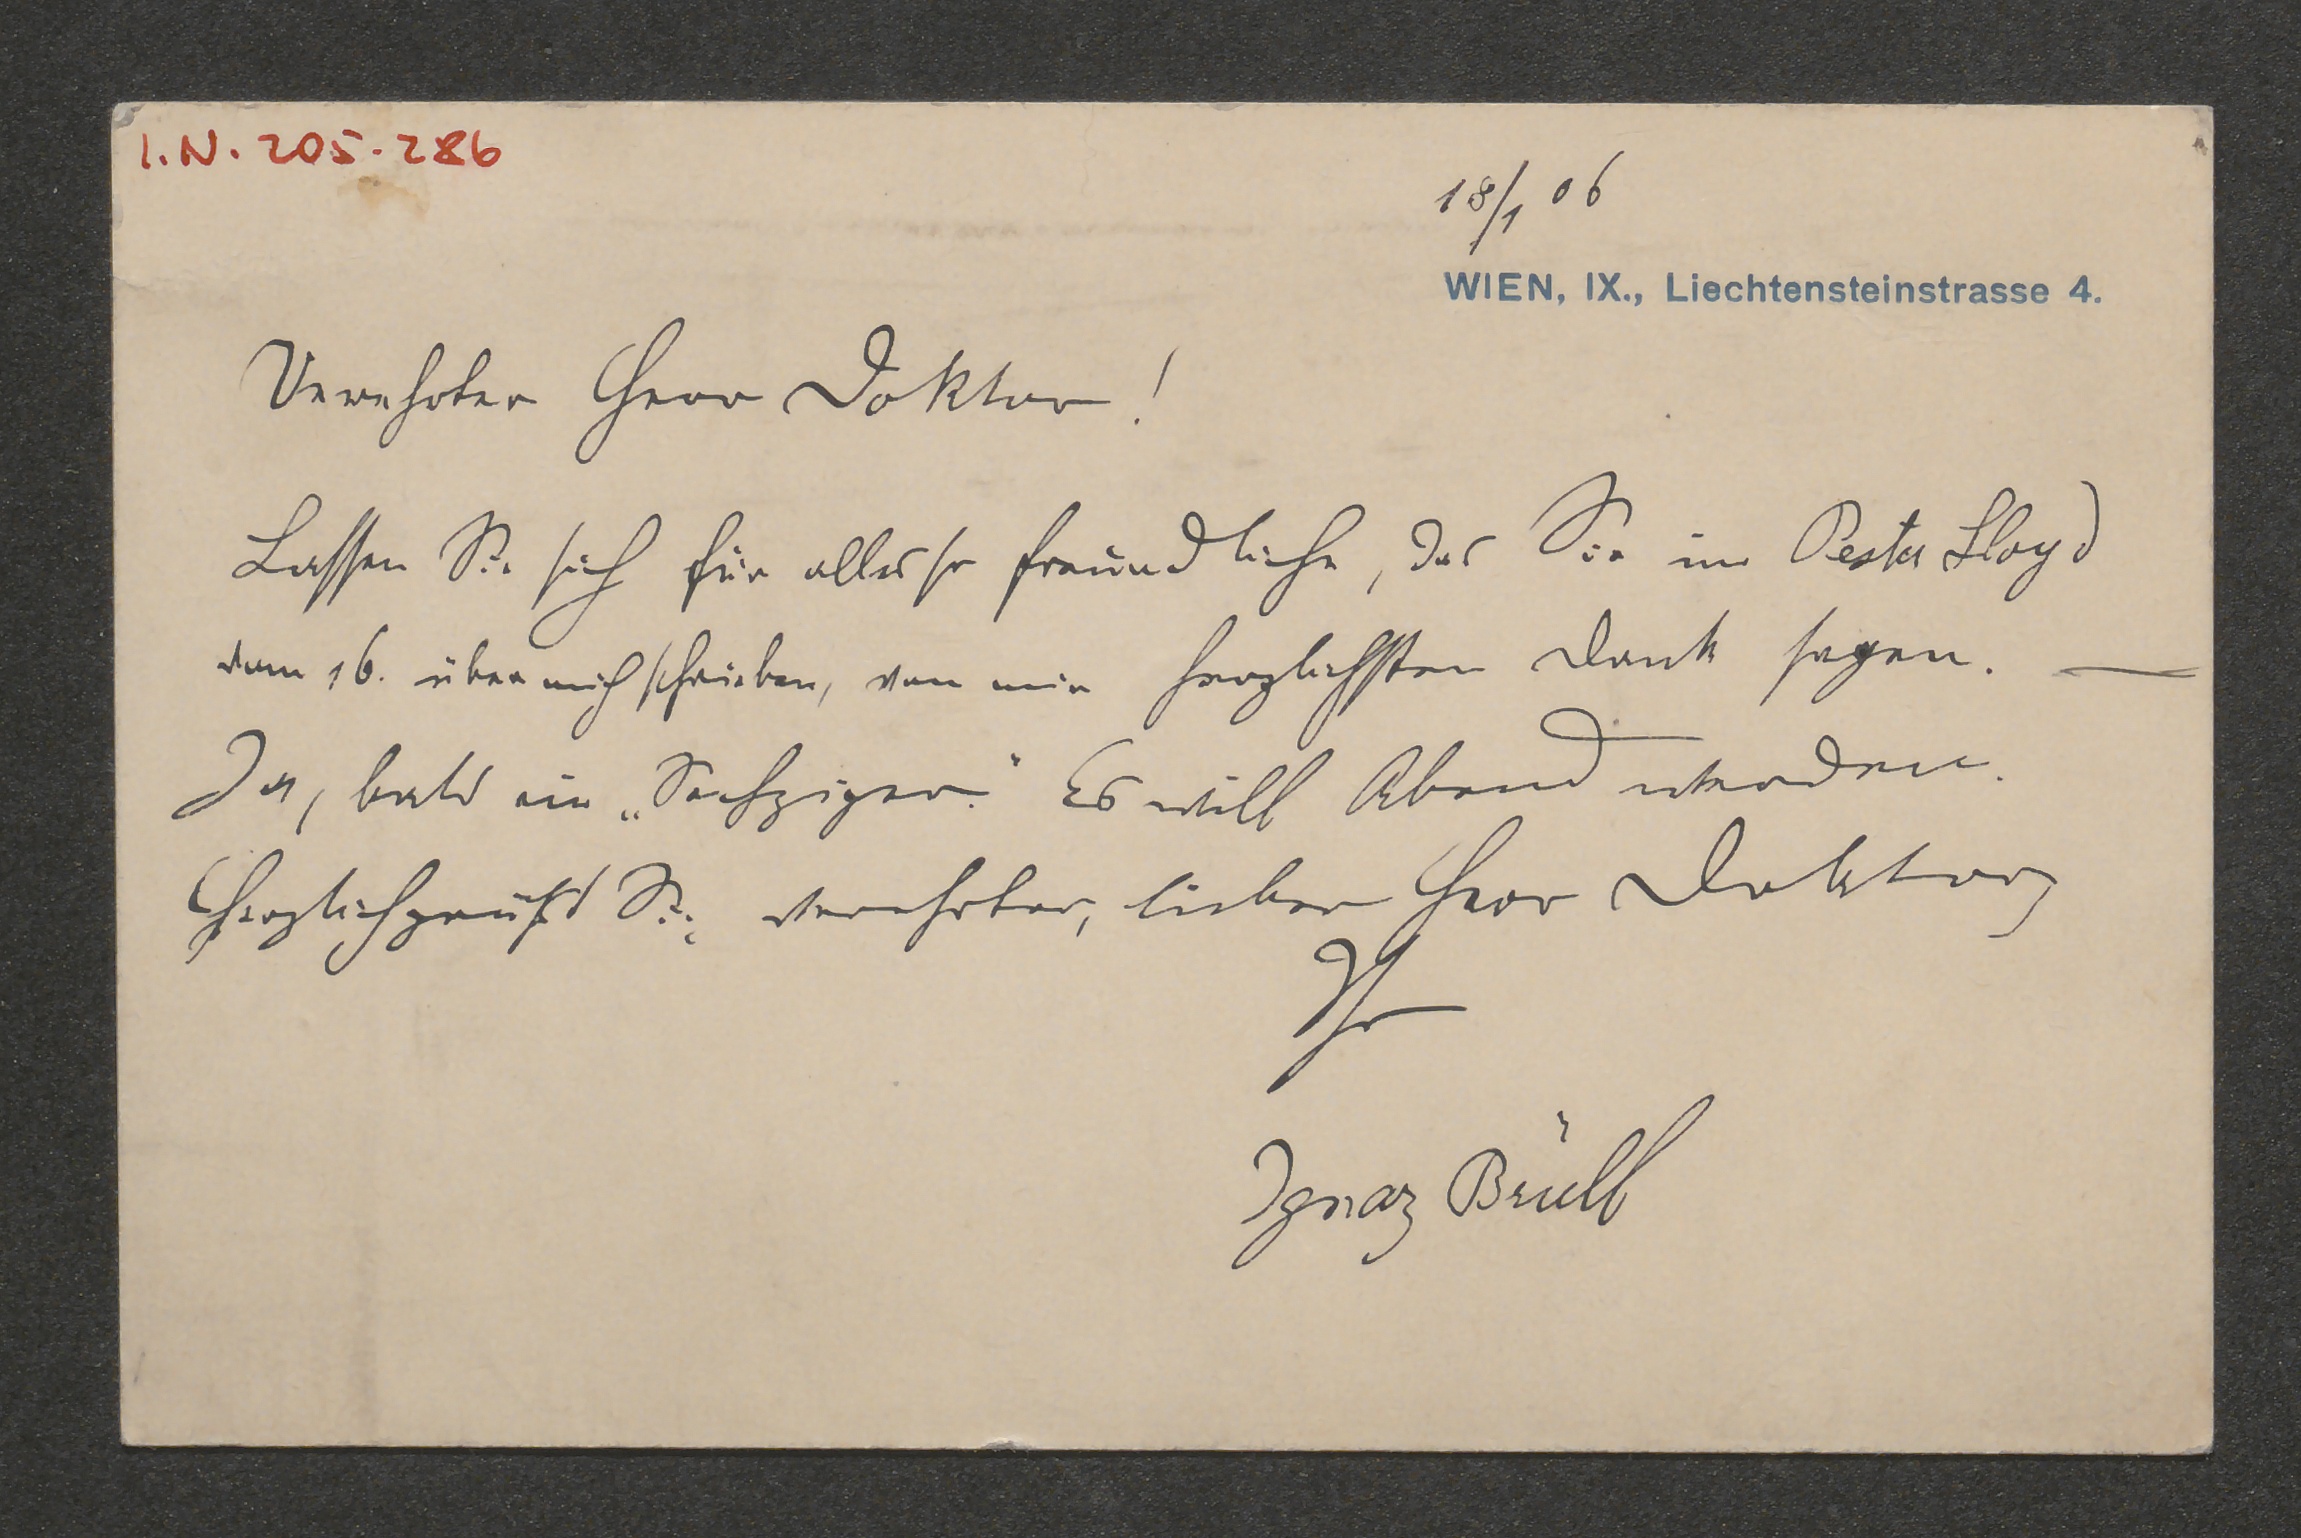 I.N. 205.286
18/1 06
WIEN, IX., Liechtensteinstrasse 4.
Verehrter Herr Doktor!
Lassen Sie sich für alles so freundliche, das Sie im Pester Lloyd
vom 16. über mich schrieben, von mir herzlichsten Dank sagen. —
Ja, bald ein „Sechziger." Es will Abend werden.
Herzlich grüßt Sie, verehrter, lieber Herr Doktor,
Ihr
Ignaz Brüll